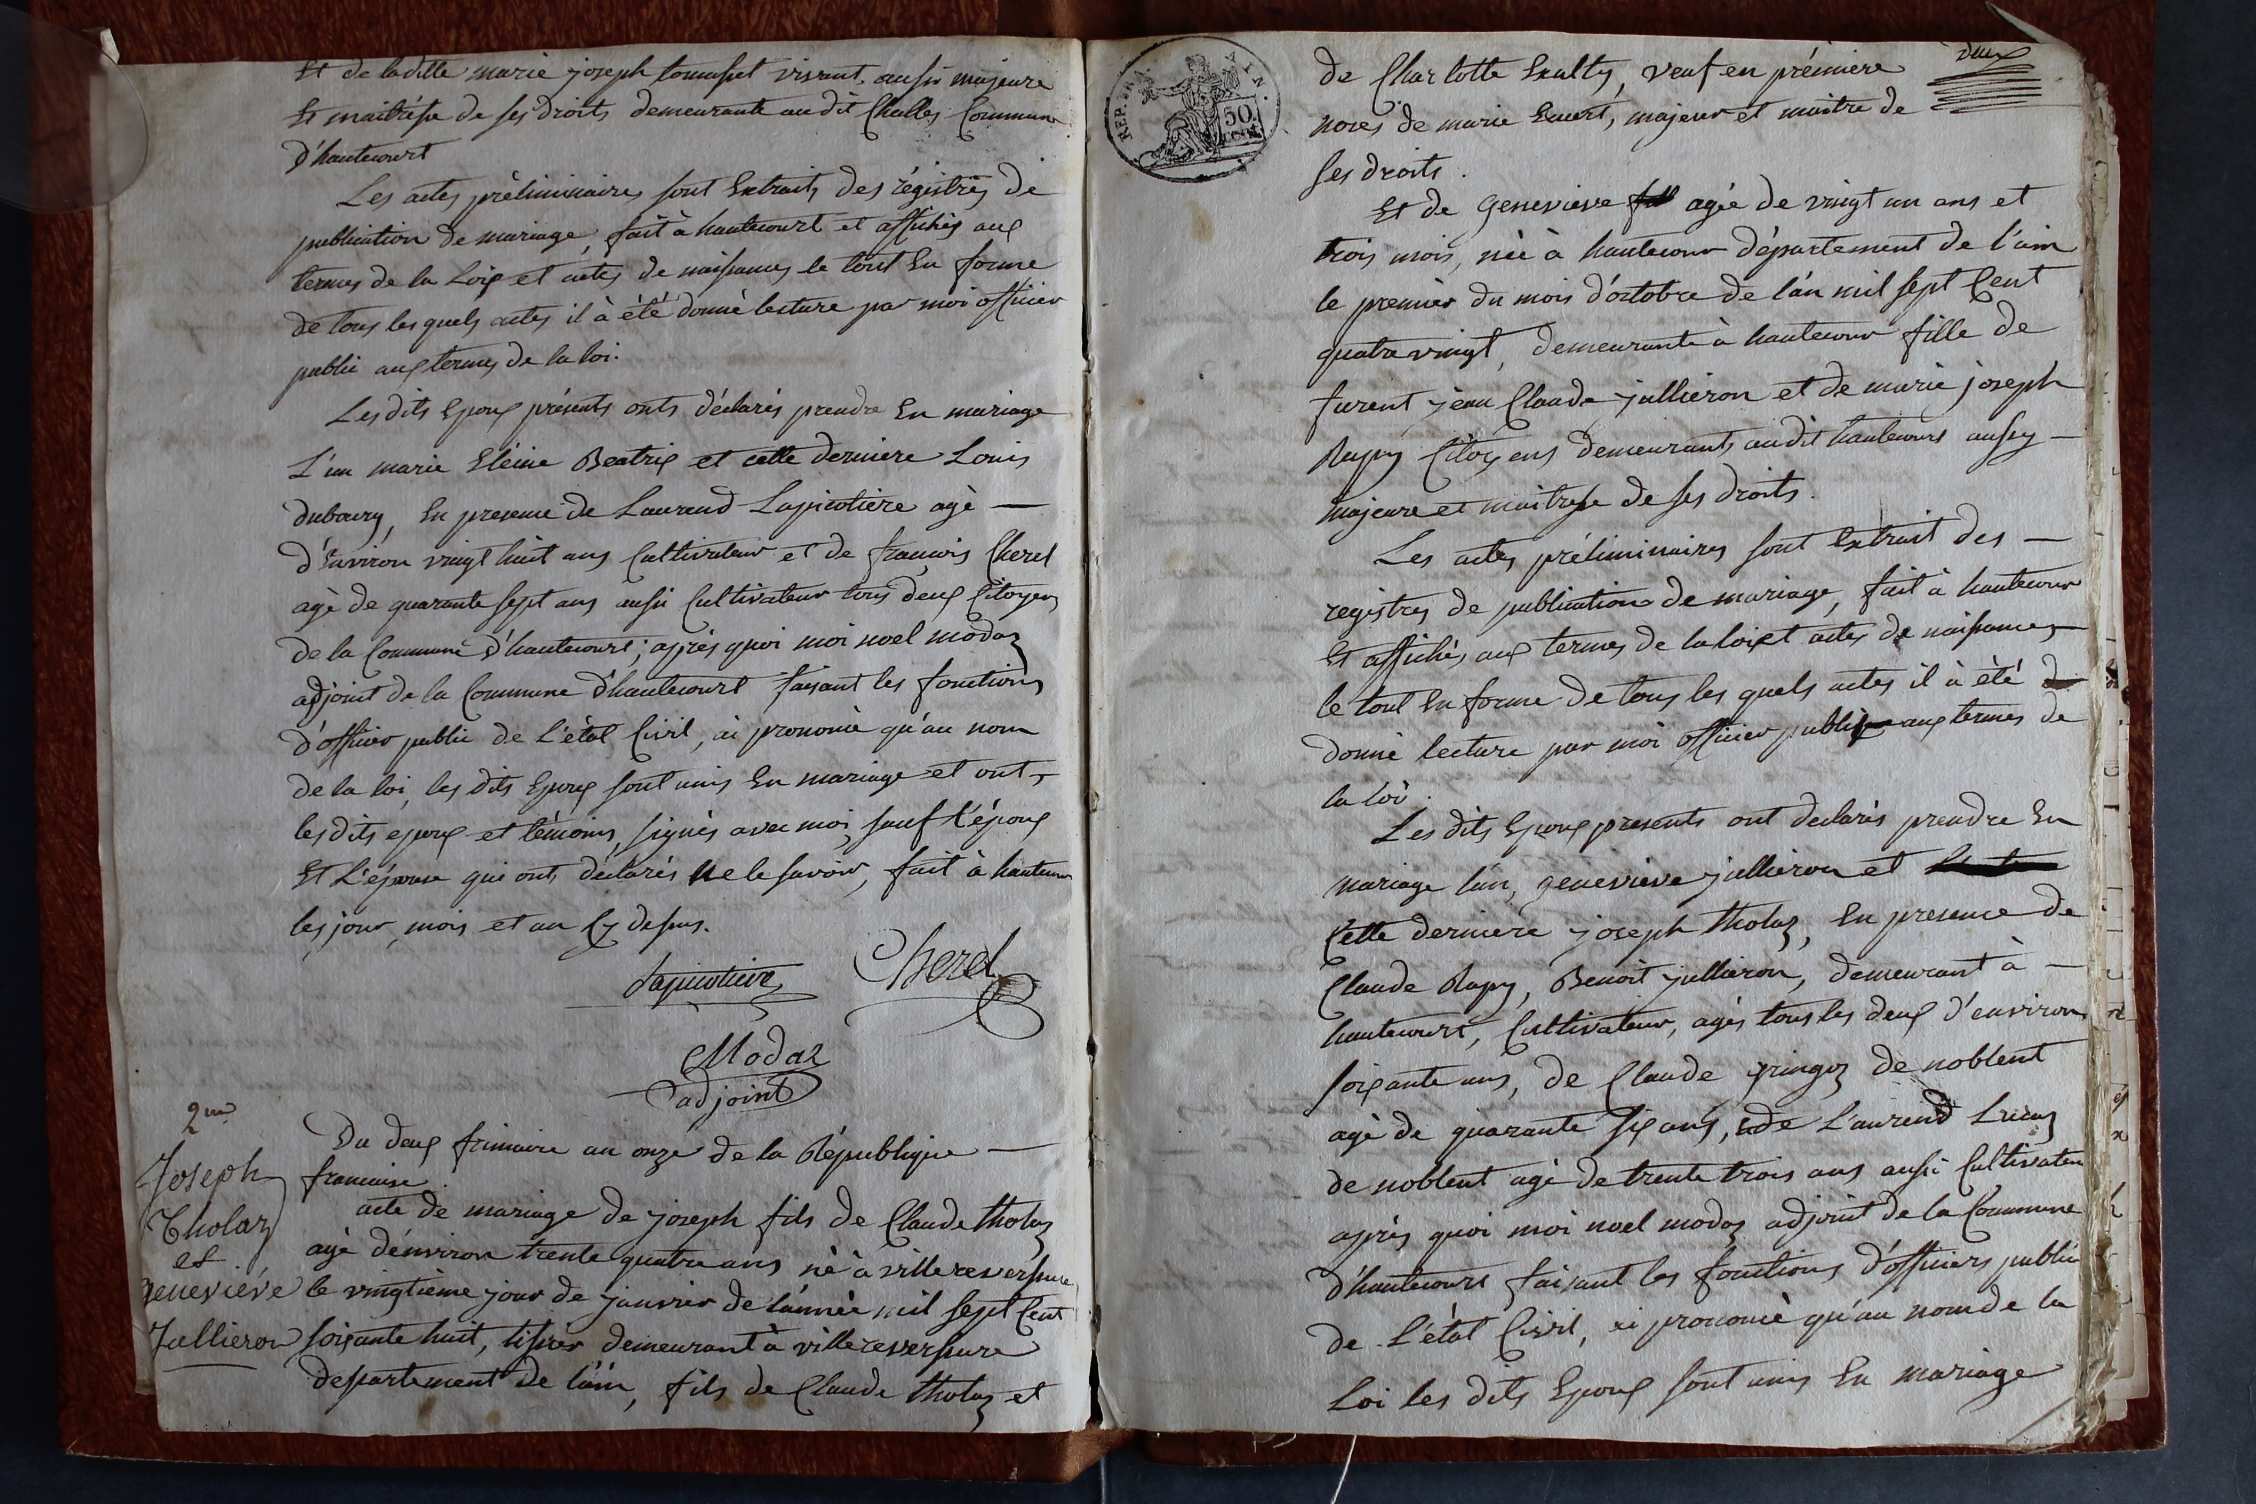 Et de la dille marie joseph tomusset vivant, aussi majeure
Et maitresse de ses droits demeurante au dit Challes Commune
d'hautecourt
Les actes préliminaires sont Extraits des régistres de
publication de mariage, fait à hautecourt et affichés aux
termes de la Loix et actes de naissances, le tout En forme
de tous les quels actes il à été donné lecture par moi officier
public aux termes de la loi.
Les dits Epoux présents onts déclarés prendre En mariage
L'un marie Eléine Beatrix et cette derniere Louis
dubourg, En presence de Laurend Lapicotiere agé
d'Environ vingt huit ans Cultivateur et de françois Cherel
agé de quarante sept ans aussi Cultivateur tous deux Citoyens
de la Commune d'hautecourt; après quoi moi noel modaz
adjoint de la Commune d'hautecourt faisant les fonctions
d'officier public de L'état Civil, ai prononcé qu'au nom
de la loi, les dits Epoux sont unis En mariage et ont
les dits epoux et témoins, signés avec moi, sauf l'époux
Et L'épouse qui ont déclarés ne le savoir, fait à hautecour
les jour, mois et an Cy dessus.
Lapicotiere Cherel
Modaz
adjoint
2me
Joseph
Tholaz
et
Geneviéve
Jullieron
Du deux frimaire an onze de la République
francaise
acte de mariage de joseph fils de Claude tholaz
agé dénviron trente quatre ans né à villereversure
le vingtiéme jour de janvier de lánnée mil sept Cent
soixante huit, tissier demeurant à villereversure
departement de láin, fils de Claude tholaz et
REP. FRA.
50
CENT
deux
de Charlotte, veuf en prémiere
noces de marie, majeur et maitre de
ses droits.
Et de Genevieve agée de vingt un ans et
trois mois, née à hautecour département de l'ain
le premier du mois d'octobre de lán mil sept Cent
quatre vingt, demeurante à hautecour fille de
furent jean Claude jullieron et de marie joseph
Rapy Citoyens demeurants au dit hautecourt aussy
majeure et maitresse de ses droits.
Les actes préliminaires sont Extrait des
registres de publication de mariage, fait à hautecour
Et affichés aux termes de la loix et actes de naissances
le tout En forme de tous les quels actes il à été
donné lecture par moi officier public aux termes de
la loi.
Les dits Epoux presents ont declarés prendre En
mariage lún, genevieve jullieron et
Cette derniere joseph tholaz, En presence de
Claude Rapy, Benoit jullieron, demeurant à
hautecourt, Cultivateur, agés tous les deux d'environ
soixante ans, de Claude gringoz de noblent
agé de quarante six ans, de Laurend
de noblent agé de trente trois ans aussi Cultivateu
après quoi moi noel modaz adjoint de la Commune
d'hautecourt faisant les fonctions d'officiers public
de L'état Civil, ai prononcé qu'au nom de la
Loi les dits Epoux sont unis En mariage